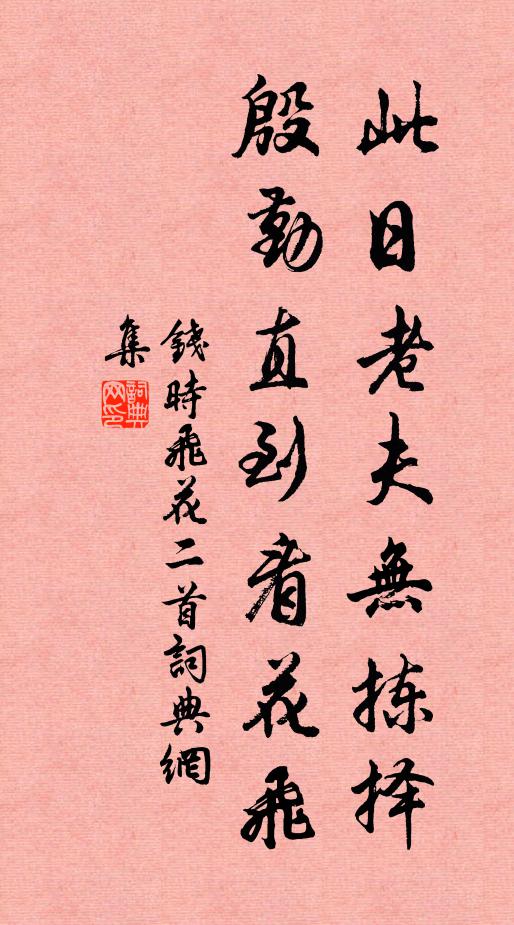 此日老夫無拣择
殷勤直到看花飛
錢時飛花二首詞典網
集
詞典網印